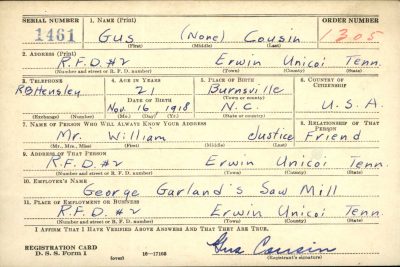 SERIAL NUMBER 1. NAME (Print) ORDER NUMBER
1461 Gus (None) Cousin 1305
(First) (Middle) (Last)
2. ADDRESS (Print)
R.F.D. #2 Erwin Unicoi Tenn.
(Number and street or R. F. D. number) (Town) (County) (State)
3. TELEPHONE 4. AGE IN YEARS 5. PLACE OF BIRTH 6. COUNTRY OF CITIZENSHIP
21 Burnsville
DATE OF BIRTH (Town or county)
Nov. 16 1918 N.C. U.S.A.
(Exchange) (Number) (Mo.) (Day) (Yr.) (State or country)
7. NAME OF PERSON WHO WILL ALWAYS KNOW YOUR ADDRESS 8. RELATIONSHIP OF THAT PERSON
Mr. William Justice Friend
(Mr., Mrs., Miss) (First) (Middle) (Last)
9. ADDRESS OF THAT PERSON
R.F.D. #2 Erwin Unicoi Tenn.
(Number and street or R. F. D. number) (Town) (County) (State)
10. EMPLOYER'S NAME
George Garland's Saw Mill
11. PLACE OF EMPLOYMENT OR BUSINESS
R.F.D. #2 Erwin Unicoi Tenn.
(Number and street or R. F. D. number) (Town) (County) (State)
I AFFIRM THAT I HAVE VERIFIED ABOVE ANSWERS AND THAT THEY ARE TRUE.
REGISTRATION CARD
D. S. S. Form 1 (over) 16—17105 Gus Cousin
(Registrant's signature)